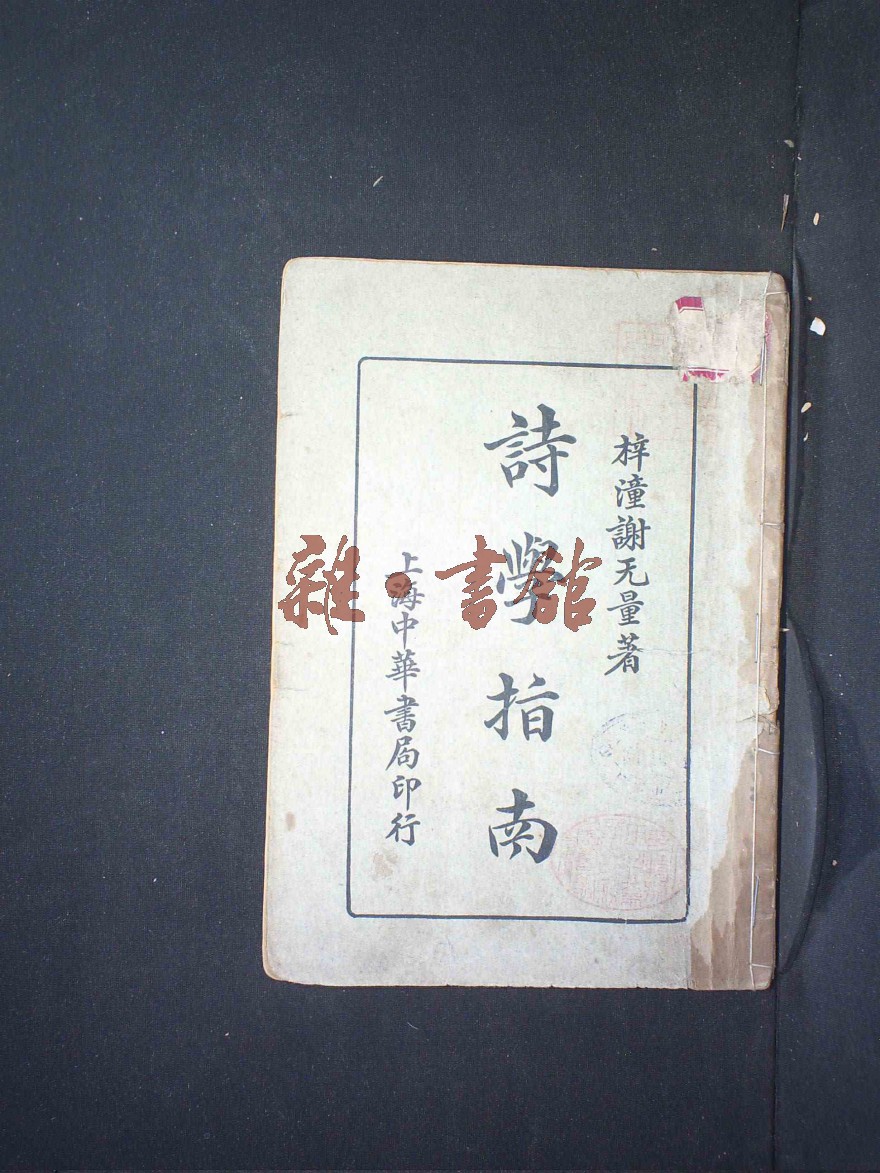 梓潼謝无量著
詩學指南
上海中華書局印行
雜·書館